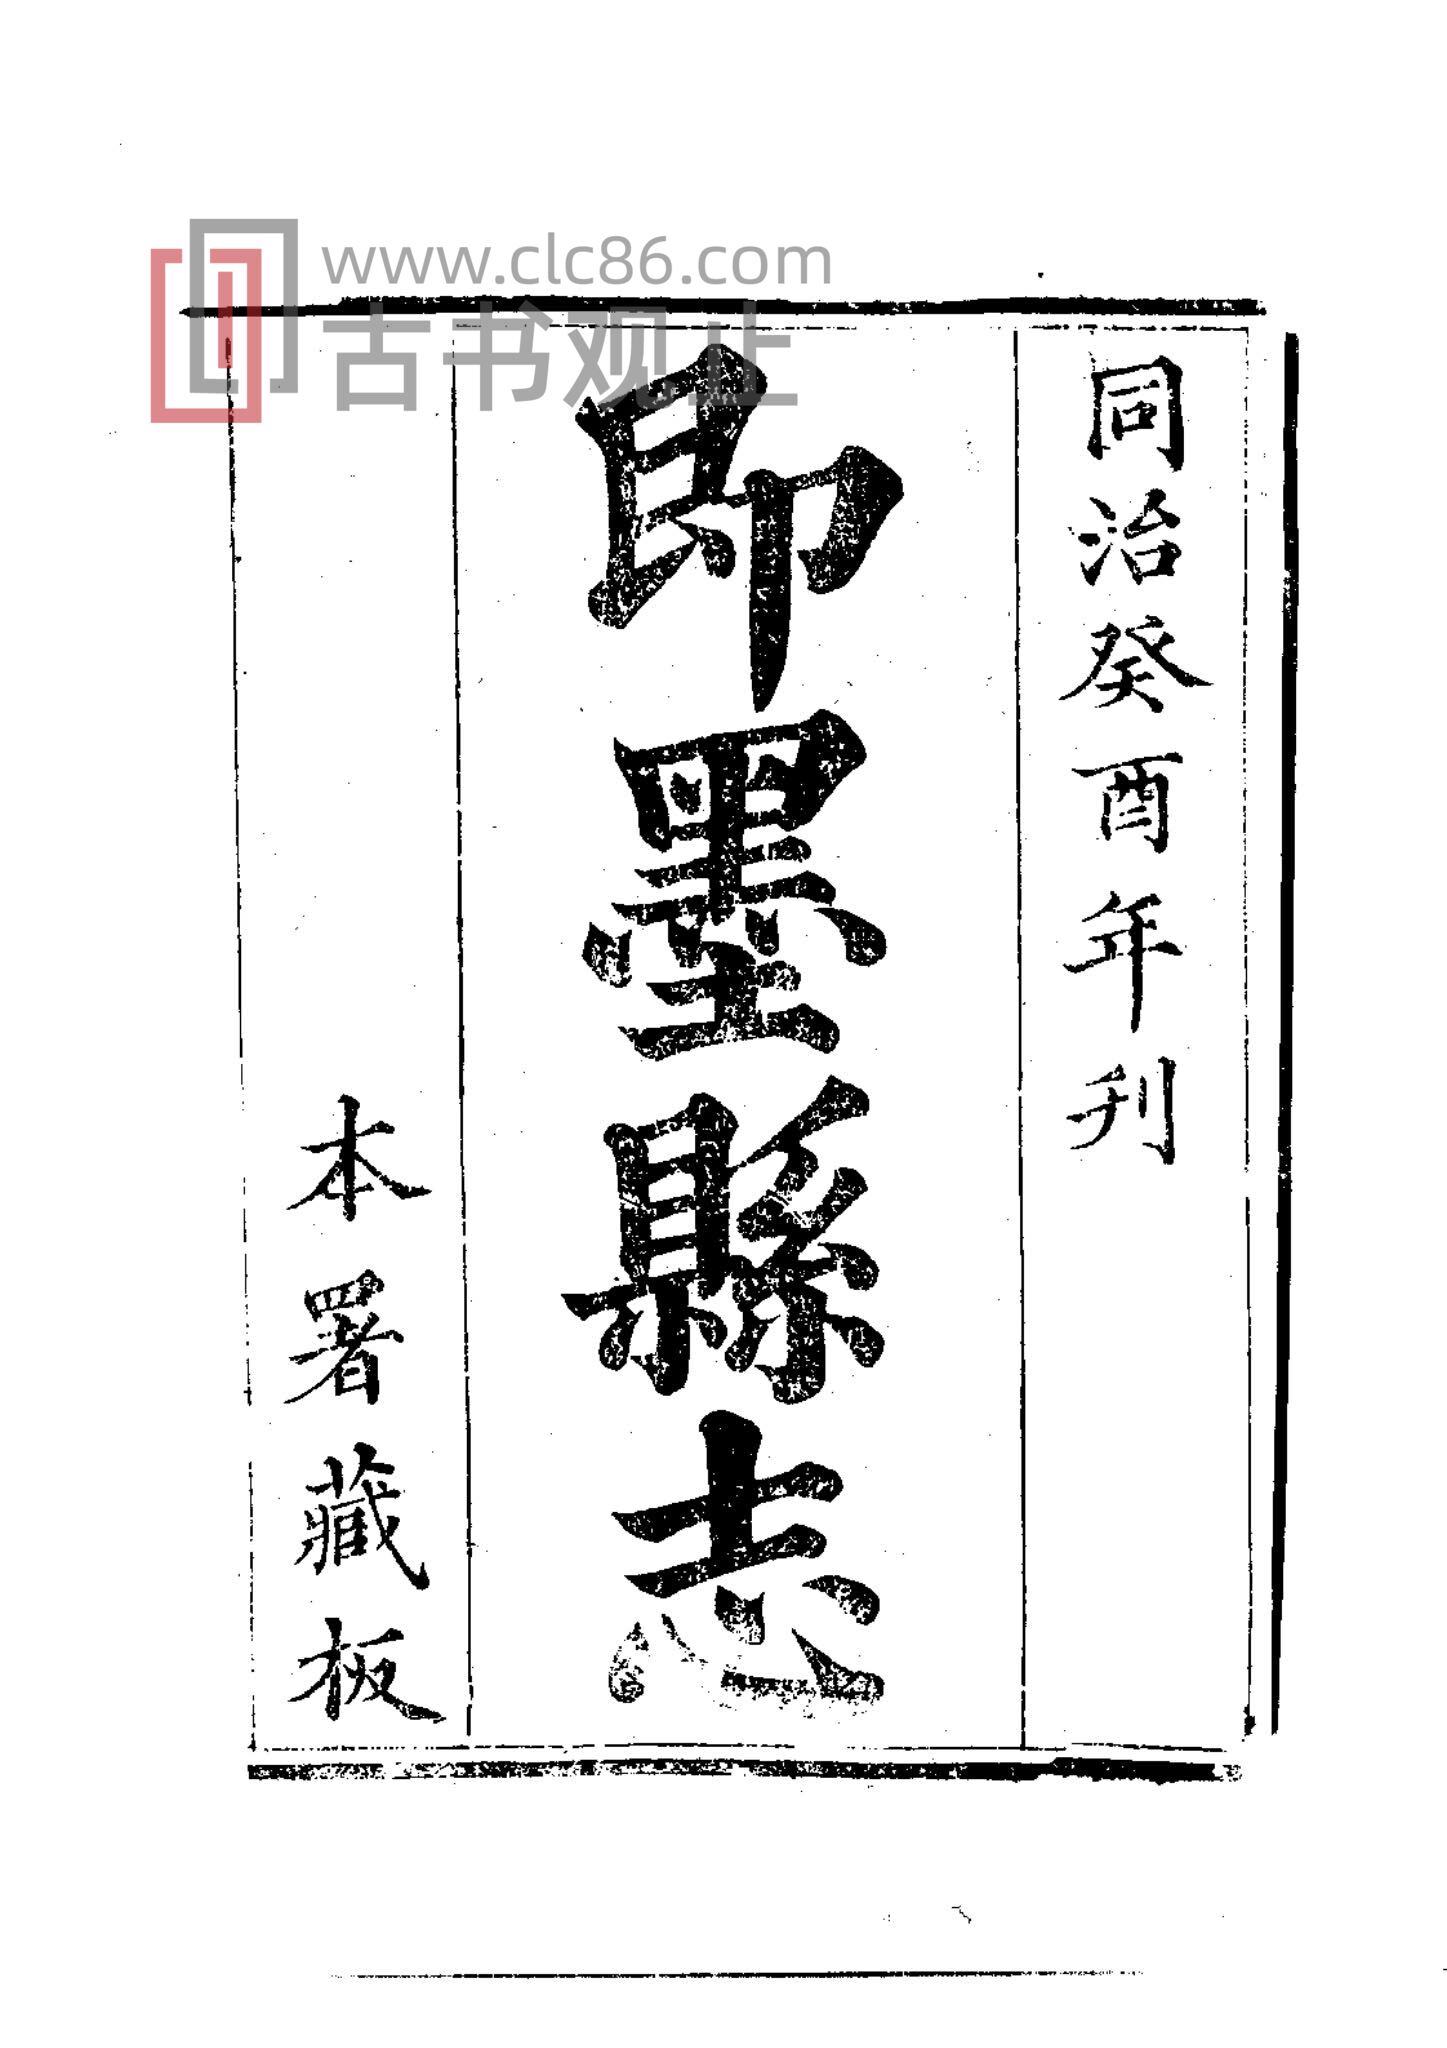 www.clc86.com
古书观止
同治癸酉年刋
即墨縣志
本署藏板